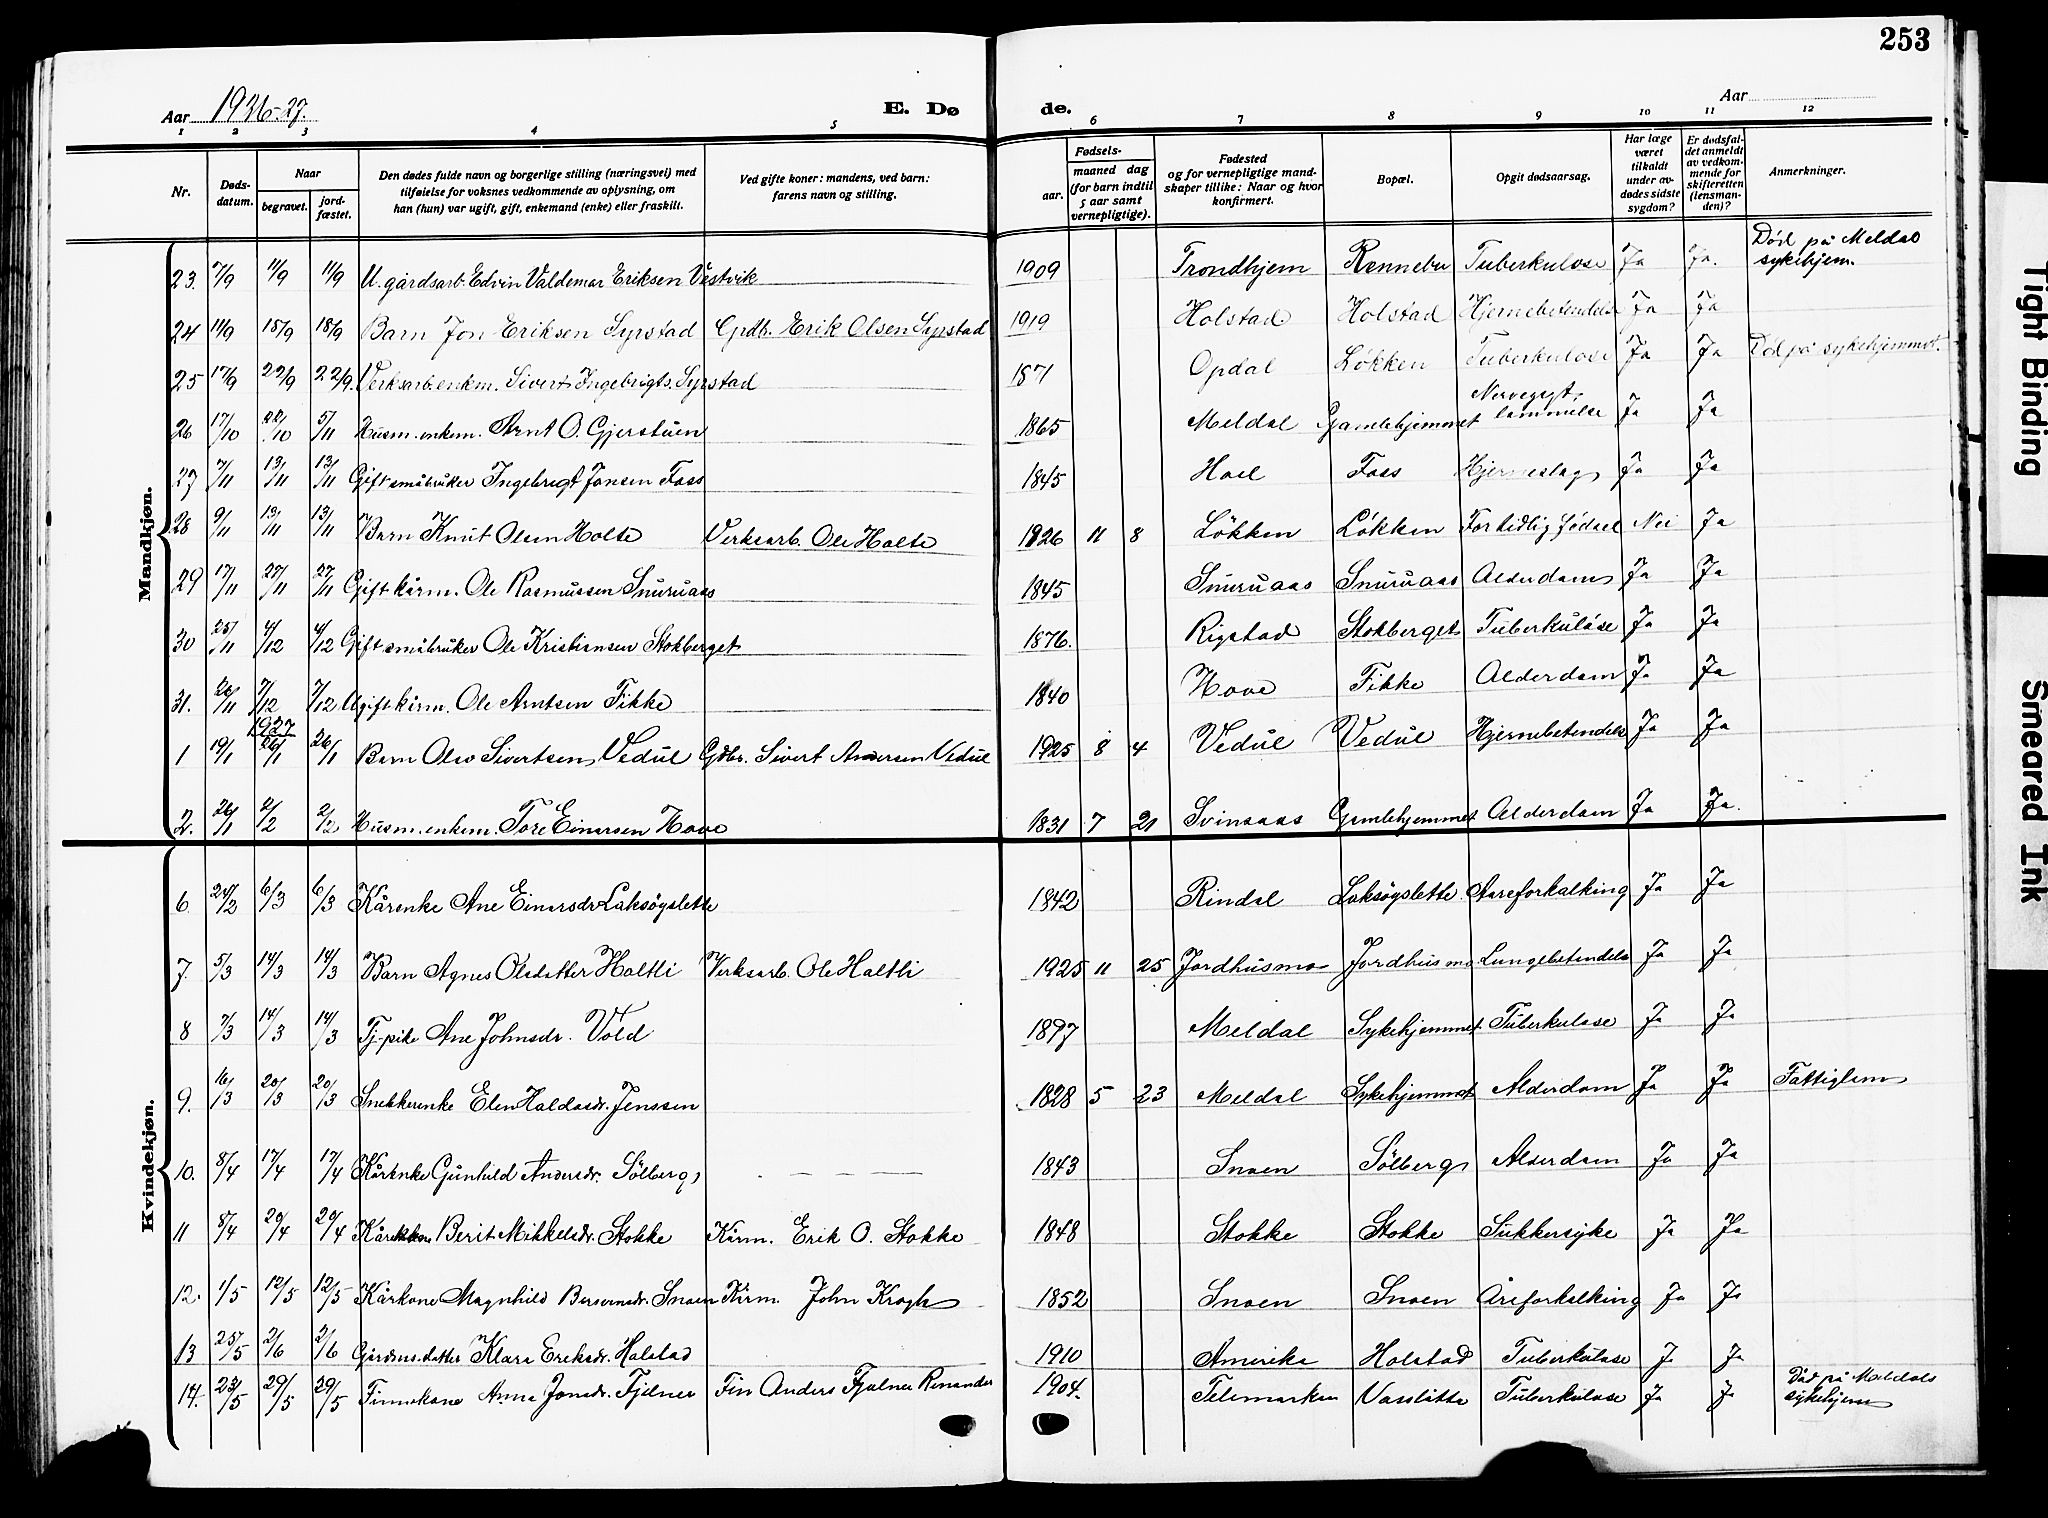 253
Aar 1926-27. E. Dø de. Aar
1 2 3 4 5 6 7 8 9 10 11 12
Nr. Døds-datum. Naar begravet. jord-fæstet. Den dødes fulde navn og borgerlige stilling (næringsvei) med tilføielse for voksnes vedkommende av oplysning, om han (hun) var ugift, gift, enkemand (enke) eller fraskilt. Ved gifte koner: mandens, ved barn: farens navn og stilling. Fødsels- aar. maaned dag (for barn indtil 5 aar samt vernepligtige). Fødested og for vernepligtige mand-skaper tillike: Naar og hvor konfirmert. Bopæl. Opgit dødsaarsag. Har læge været tilkaldt under av-dødes sidste sygdom? Er dødsfal-det anmeldt av vedkom-mende for skifteretten (lensman-den)? Anmerkninger.
Mandkjøn.
23. 7/9 11/9 11/9 U. gårdsarb. Edvin Valdemar Eriksen Vestvik 1909 Trondhjem Rennebu Tuberkulose Ja Ja. Død på Meldal sykehjem.
24 14/9 18/9 18/9 Barn Jon Eriksen Syrstad Grdb. Erik Olsen Syrstad 1919 Holstad Holstad Hjernebetendelse Ja Ja
25 17/9 22/9 22/9. Verksarb. enkm. Sivert Ingebrigts. Syrstad 1871 Opdal Løkken Tuberkulose Ja Ja Død på sykehjemmet.
26 17/10 22/10 5/11 Husm. enkem. Arnt O. Gjerstuen 1865 Meldal Gamlehjemmet Nervegigt, lammelse Ja Ja
27 7/11 13/11 13/11 Gift småbruker Ingebrigt Jonsen Foss 1845 Hoel Foss Hjerneslag Ja Ja
28 9/11 13/11 13/11 Barn Knut Olsen Holte Verksarb. Ole Holte 1926 11 8 Løkken Løkken For tidlig fødsel Nei Ja
29 17/11 27/11 27/11 Gift kårm. Ole Rasmussen Snuruaas 1845 Snuruaas Snuruaas Alderdom Ja Ja
30 25/11 4/12 4/12 Gift småbruker Ole Kristiansen Stokberget 1876. Rigstad Stokberget Tuberkulose Ja Ja
31. 26/11 7/12 7/12 Ugift kårm. Ole Arntsen Fikke 1840 Hove Fikke Alderdom Ja Ja
1927
1 19/1 26/1 26/1 Barn Olav Sivertsen Vedul Gdbr. Sivert Andersen Vedul 1925 8 4 Vedul Vedul Hjernebetendelse Ja Ja
2. 26/1 2/2 2/2 Husm. enkem. Tore Einarsen Hove 1831 7 21 Svinsaas Gamlehjemmet Alderdom Ja Ja.
Kvindekjøn.
6 24/2 6/3 6/3 Kårenke Ane Einarsdr Laksøyslette 1842 Rindal Laksøyslette Aareforkalking Ja Ja
7. 5/3 14/3 14/3 Barn Agnes Olsdatter Holtli Verksarb. Ole Holtli 1925 11 25 Jordhusmo Jordhusmo Lungebetendelse Ja Ja
8 7/3 14/3 14/3 Tj-pike Ane Johnsdr. Vold 1897 Meldal Sykehjemmet Tuberkulose Ja Ja
9. 16/3 20/3 20/3 Snekkerenke Elen Haldosdr. Jenssen 1828 5 23 Meldal Sykehjemmet Alderdom Ja Ja Fattiglem
10. 8/4 17/4 17/4 Kårenke Gunhild Andersdr. Sølberg 1843 Snoen Sølberg Alderdom Ja Ja
11 8/4 20/4 20/4 Kårkone Berit Mikkelsdr. Stokke Kårm. Erik O. Stokke 1848 Stokke Stokke Sukkersyke Ja Ja
12. 1/5 12/5 12/5 Kårkone Magnhild Bersvensdr. Snoen Kårm. John Krogh 1852 Snoen Snoen Åreforkalking Ja Ja
13 25/5 2/6 2/6 Gårdms. datter Klara Eriksdr. Holstad 1910 Amerika Holstad Tuberkulose Ja Ja
14. 23/5 29/5 29/5 Finnekone Anna Jonsdr. Fjelner Fin Anders Fjelner Renander 1904. Telemarken Vasslitta Tuberkulose Ja Ja Død på Meldals sykehjem
Tight Binding
Smeared Ink